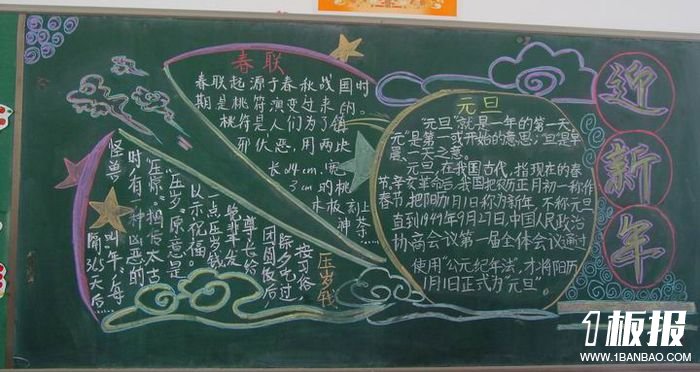 春联
春联起源于春秋战国时
期是桃符演变过来的,
桃符是人们为了镇
邪伏恶,用两块
长 cm、宽
3cm的桃
木板刻上
神荼
元旦
"元旦"就是一年的第一天.
元"是第一或开始的意思;"旦是早
晨、一天之意。
元旦,在我国古代,指现在的春
节,辛亥革命后,我国把农历正月初一称作
春节,把阳历1月1日称为新年,不称元旦
直到1949年9月27日,中国人民政治
协商会议第一届全体会议通过
使用"公元纪年法",才将阳历
1月1日正式为元旦"
迎
新
年
压岁钱
按习俗,
除夕吃过
团圆饭后
尊长给
晚辈发
一点压岁钱
以示祝福
"压岁"原意是
"压惊",相传太古
时,有一种凶恶的
怪兽叫"年",每
隔365天后.
1板报
WWW.1BANBAO.COM